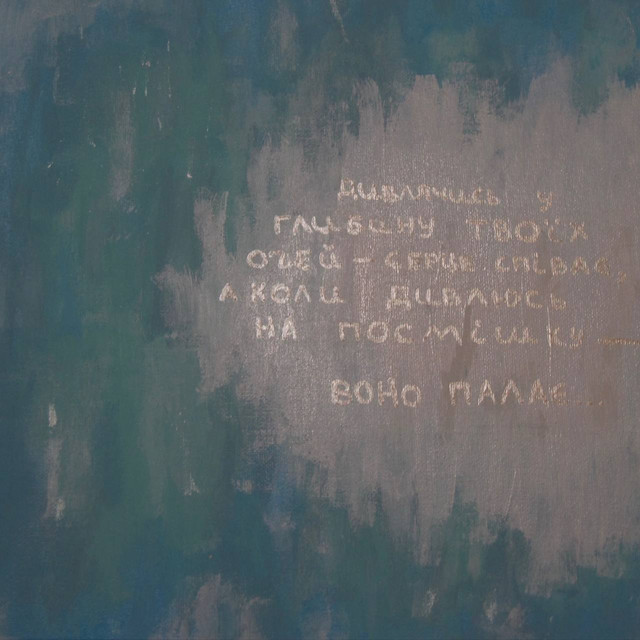 Дивлячись у
глибину твоїх
очей - серце співає,
а коли дивлюсь
на посмішку —
воно палає...